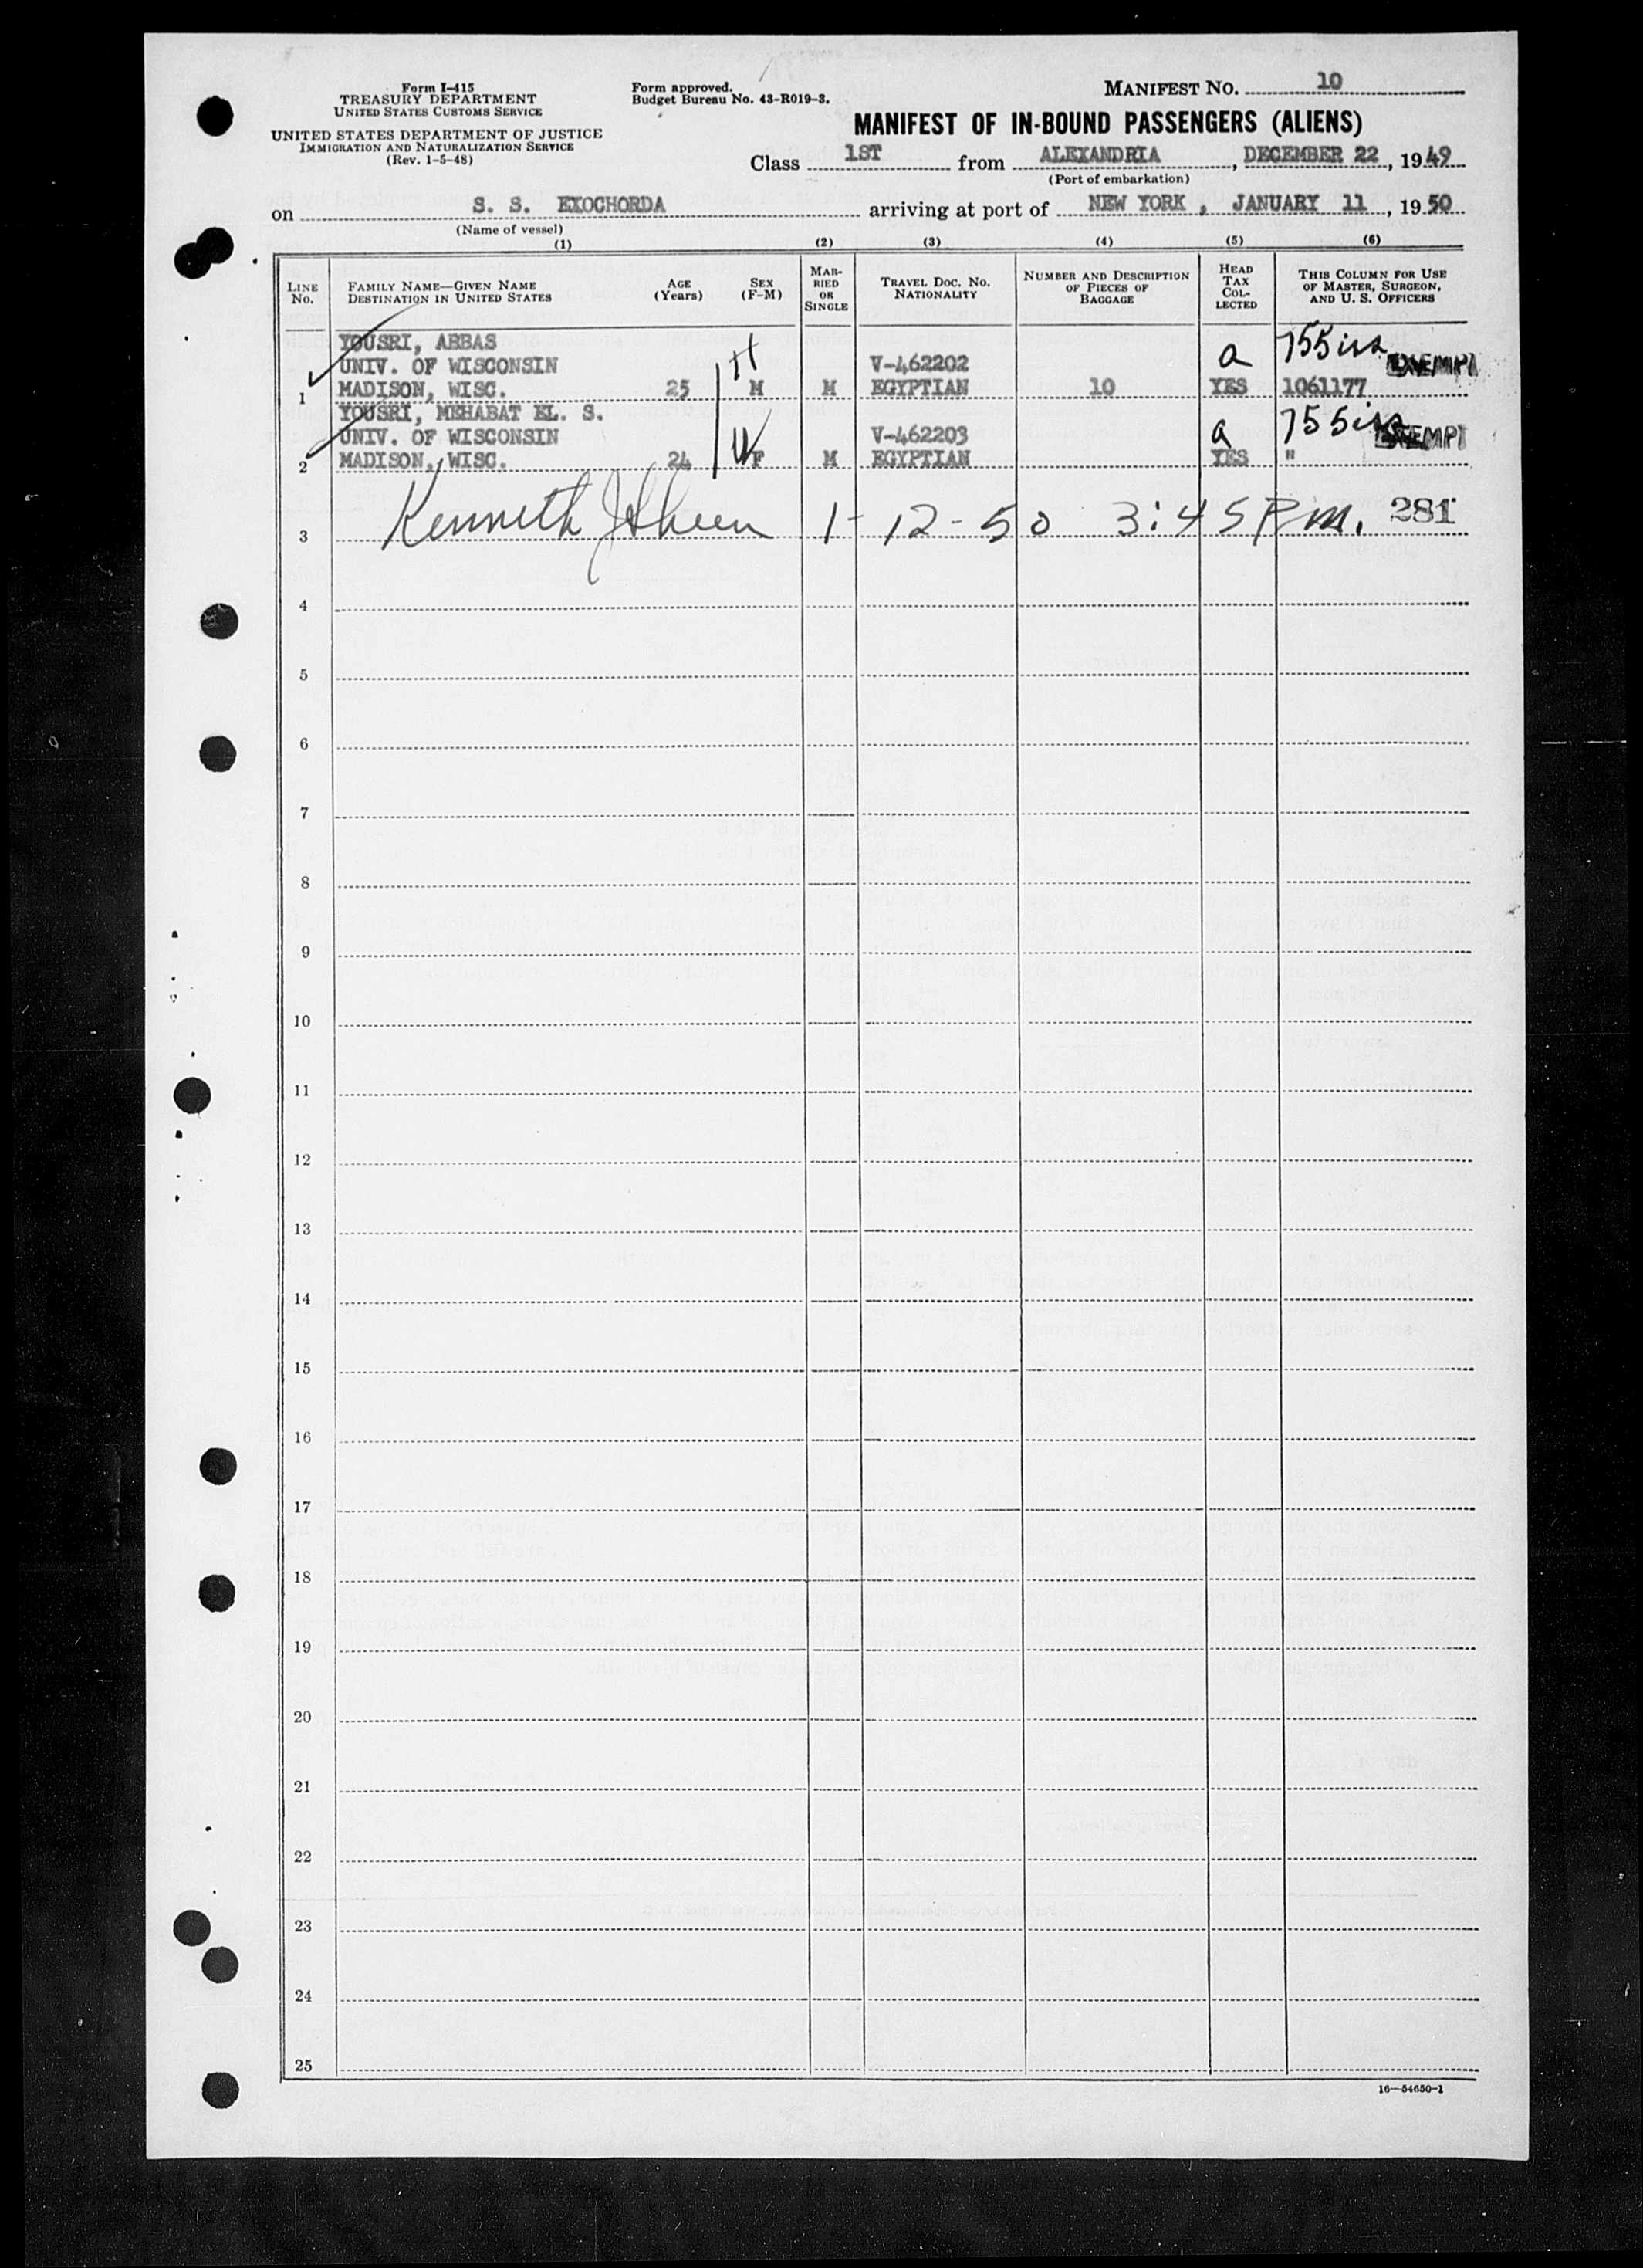 Form I-415
TREASURY DEPARTMENT
UNITED STATES CUSTOMS SERVICE
UNITED STATES DEPARTMENT OF JUSTICE
IMMIGRATION AND NATURALIZATION SERVICE
(Rev. 1-5-48)
Form approved.
Budget Bureau No. 43-R019-3.
MANIFEST NO. 10
MANIFEST OF IN-BOUND PASSENGERS (ALIENS)
Class 1ST from ALEXANDRIA, DECEMBER 22, 1949
(Port of embarkation)
on S. S. EXOCHORDA arriving at port of NEW YORK, JANUARY 11, 1950
(Name of vessel)
(1) (2) (3) (4) (5) (6)
LINE No. FAMILY NAME—GIVEN NAME DESTINATION IN UNITED STATES AGE (Years) SEX (F-M) MARRIED OR SINGLE TRAVEL DOC. NO. NATIONALITY NUMBER AND DESCRIPTION OF PIECES OF BAGGAGE HEAD TAX COLLECTED THIS COLUMN FOR USE OF MASTER, SURGEON, AND U. S. OFFICERS
YOUSRI, ABBAS
UNIV. OF WISCONSIN H V-462202 a 755iss EXEMPT
1 MADISON, WISC. 25 M M EGYPTIAN 10 YES 1061177
YOUSRI, MEHABAT EL. S.
UNIV. OF WISCONSIN W V-462203 a 755iss EXEMPT
2 MADISON, WISC. 24 F M EGYPTIAN YES "
3 Kenneth J 1-12-50 3:45 P.m. 281
4
5
6
7
8
9
10
11
12
13
14
15
16
17
18
19
20
21
22
23
24
25
16—54650-1